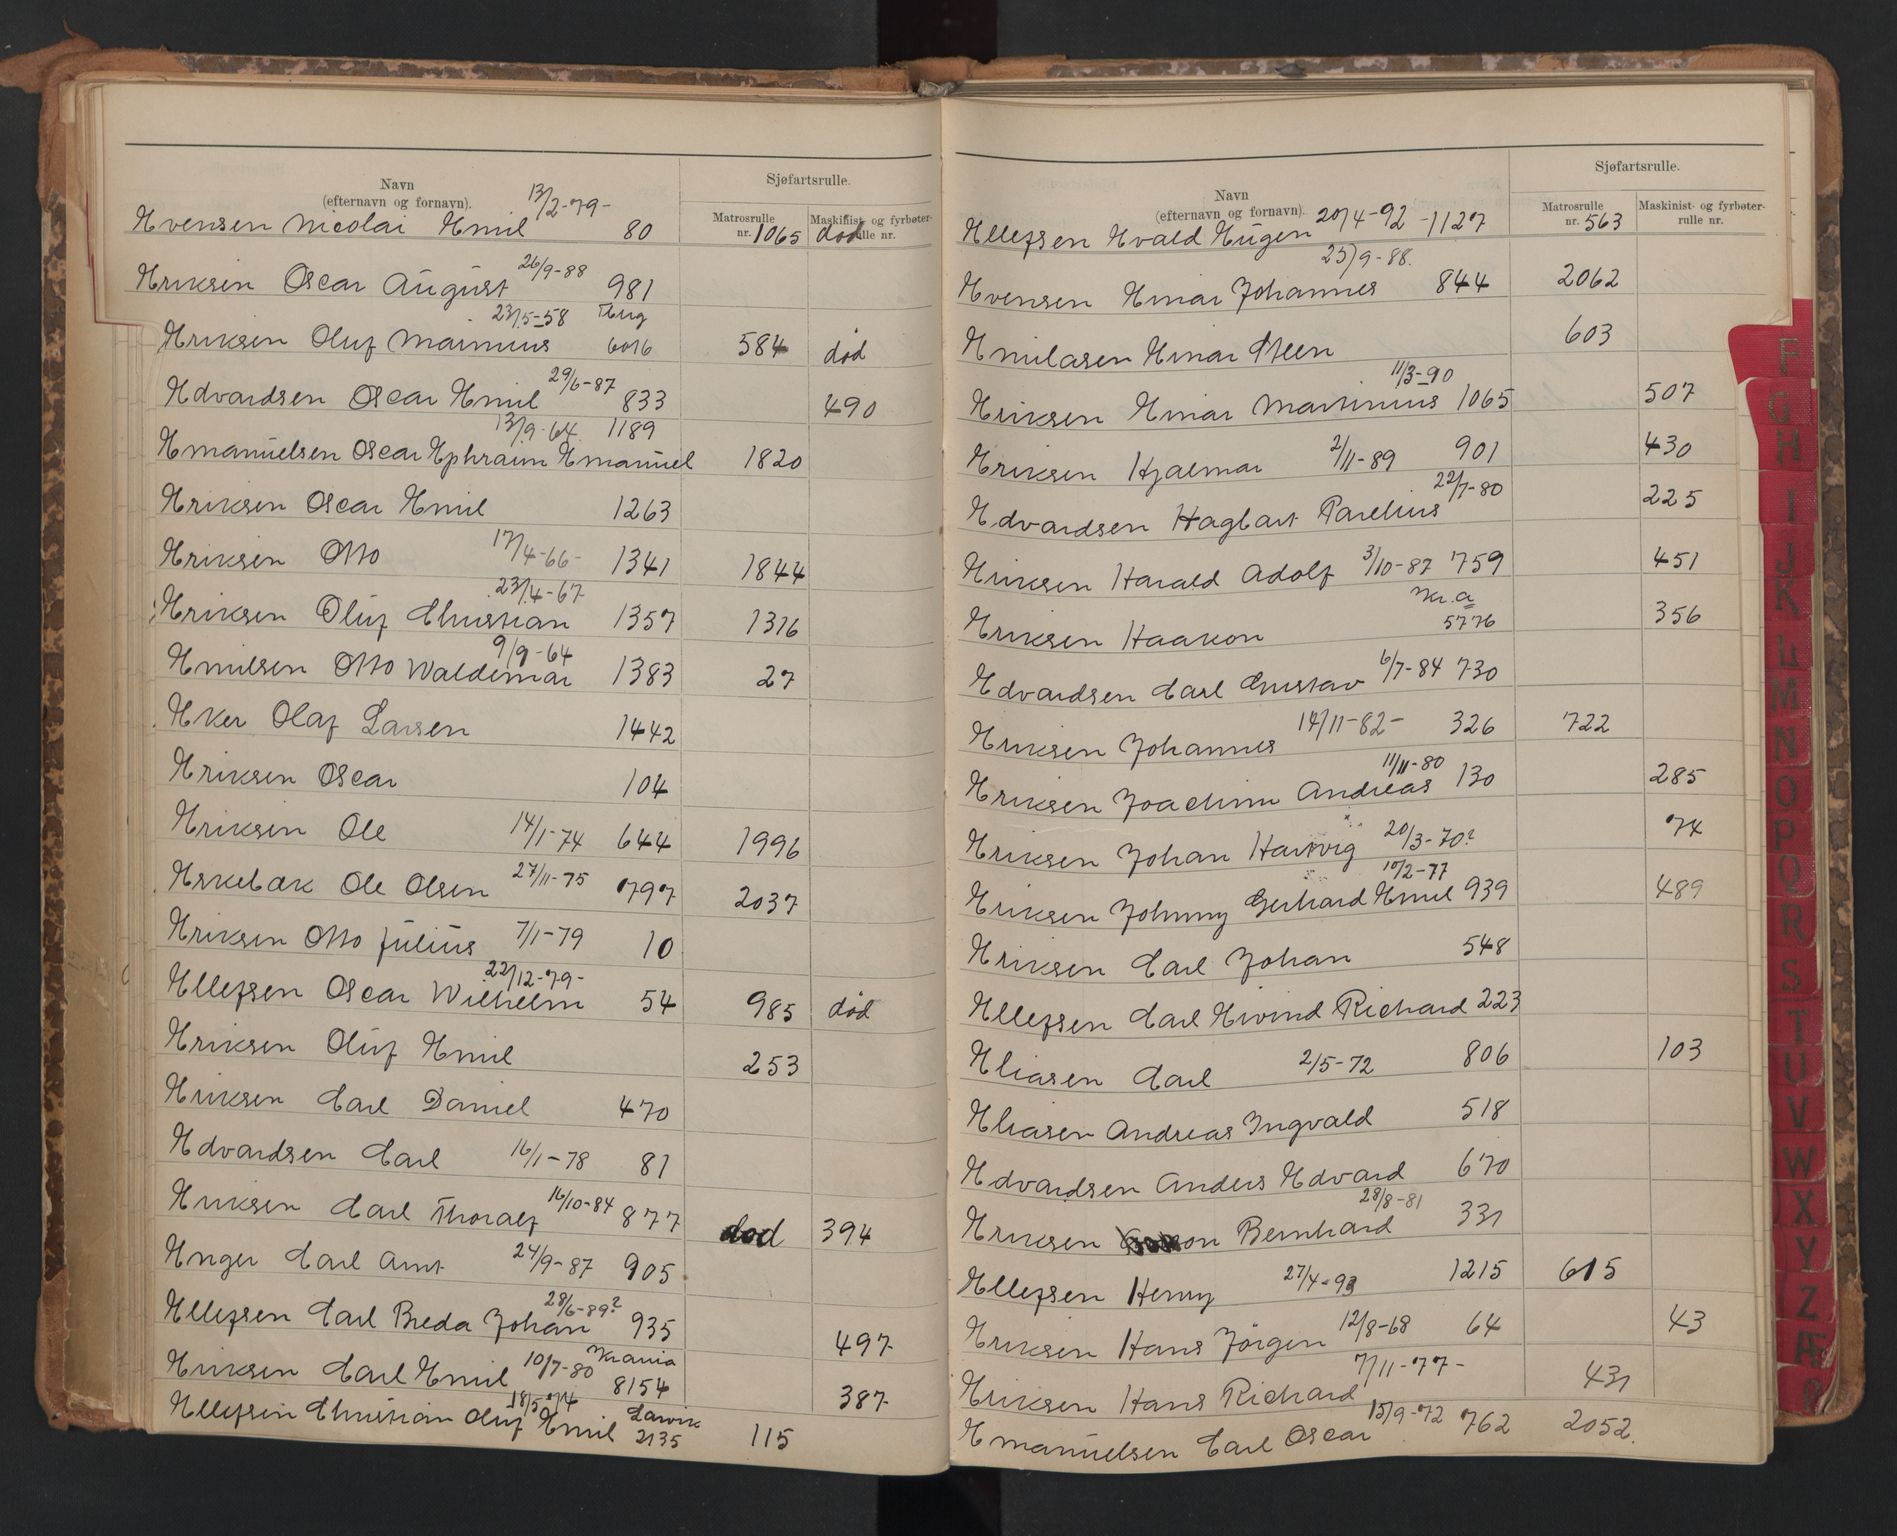 Navn
(efternavn og fornavn).
Sjøfartsrulle.
Matrosrulle nr.
Maskinist- og fyrbøter-rulle nr.
Evensen Nicolai Emil 13/2-79- 80 1065 død
Eriksen Oscar August 26/9-88 981
Eriksen Oluf Marinius 23/5-58 6016 584 død
Edvardsen Oscar Emil 29/6-87 833 490
Emanuelsen Oscar Ephraim Emanuel 13/9-64. 1189 1820
Eriksen Oscar Emil 1263
Eriksen Otto 17/4-66- 1341 1844
Eriksen Oluf Christian 23/4-67 1357 1316
Emilsen Otto Waldemar 9/9-64 1383 27
Eker Olaf Larsen 1442
Eriksen Oscar 104
Eriksen Ole 14/1-74 644 1996
Eskebæk Ole Olsen 27/11-75 797 2037
Eriksen Otto Julius 7/1-79 10
Ellefsen Oscar Wilhelm 22/12-79- 54 985 død
Eriksen Oluf Emil 253
Eriksen Carl Daniel 470
Edvardsen Carl 16/1-78 81
Eriksen Carl Thoralf 16/10-84 877 død 394
Enger Carl Arnt 24/9-87 905
Ellefsen Carl Breda Johan 28/6-89? 935 497
Eriksen Carl Emil 10/7-80 Krania 8154 387
Ellefsen Christian Oluf Emil 18/5-74 Larvik 2135 115
Navn
(efternavn og fornavn).
Sjøfartsrulle.
Matrosrulle nr.
Maskinist- og fyrbøter-rulle nr.
Ellefsen Evald Eugen 20/4-92 -1127 563
Evensen Einar Johannes 25/9-88. 844 2062
Emilasen Einar Steen 603
Eriksen Einar Martinius 11/3-90 1065 507
Eriksen Hjalmar 2/11-89 901 430
Edvardsen Hagbart Parelius 22/7-80 225
Eriksen Harald Adolf 3/10-87 759 451
Eriksen Haakon Kr.a 5776 356
Edvardsen Carl Gustav 6/7-84 730
Eriksen Johannes 14/11-82- 326 722
Eriksen Joachim Andreas 11/11-80 130 285
Eriksen Johan Hartvig 20/3-70? 74
Eriksen Johnny Gerhard Emil 10/2-77 939 489
Eriksen Carl Johan 548
Ellefsen Carl Eivind Richard 223
Eliasen Carl 2/5-72 806 103
Eliasen Andreas Ingvald 518
Edvardsen Anders Edvard 670
Eriksen Bernhard 28/8-81 331
Ellefsen Henry 27/4-93 1215 615
Eriksen Hans Jörgen 12/8-68 64 43
Eriksen Hans Richard 7/11-77- 431
Emanuelsen Carl Oscar 15/9-72 762 2052.
F
G
H
I
J
K
L
M
N
O
P
Q
R
S
T
U
V
W
X
Y
Z
Æ
Ø